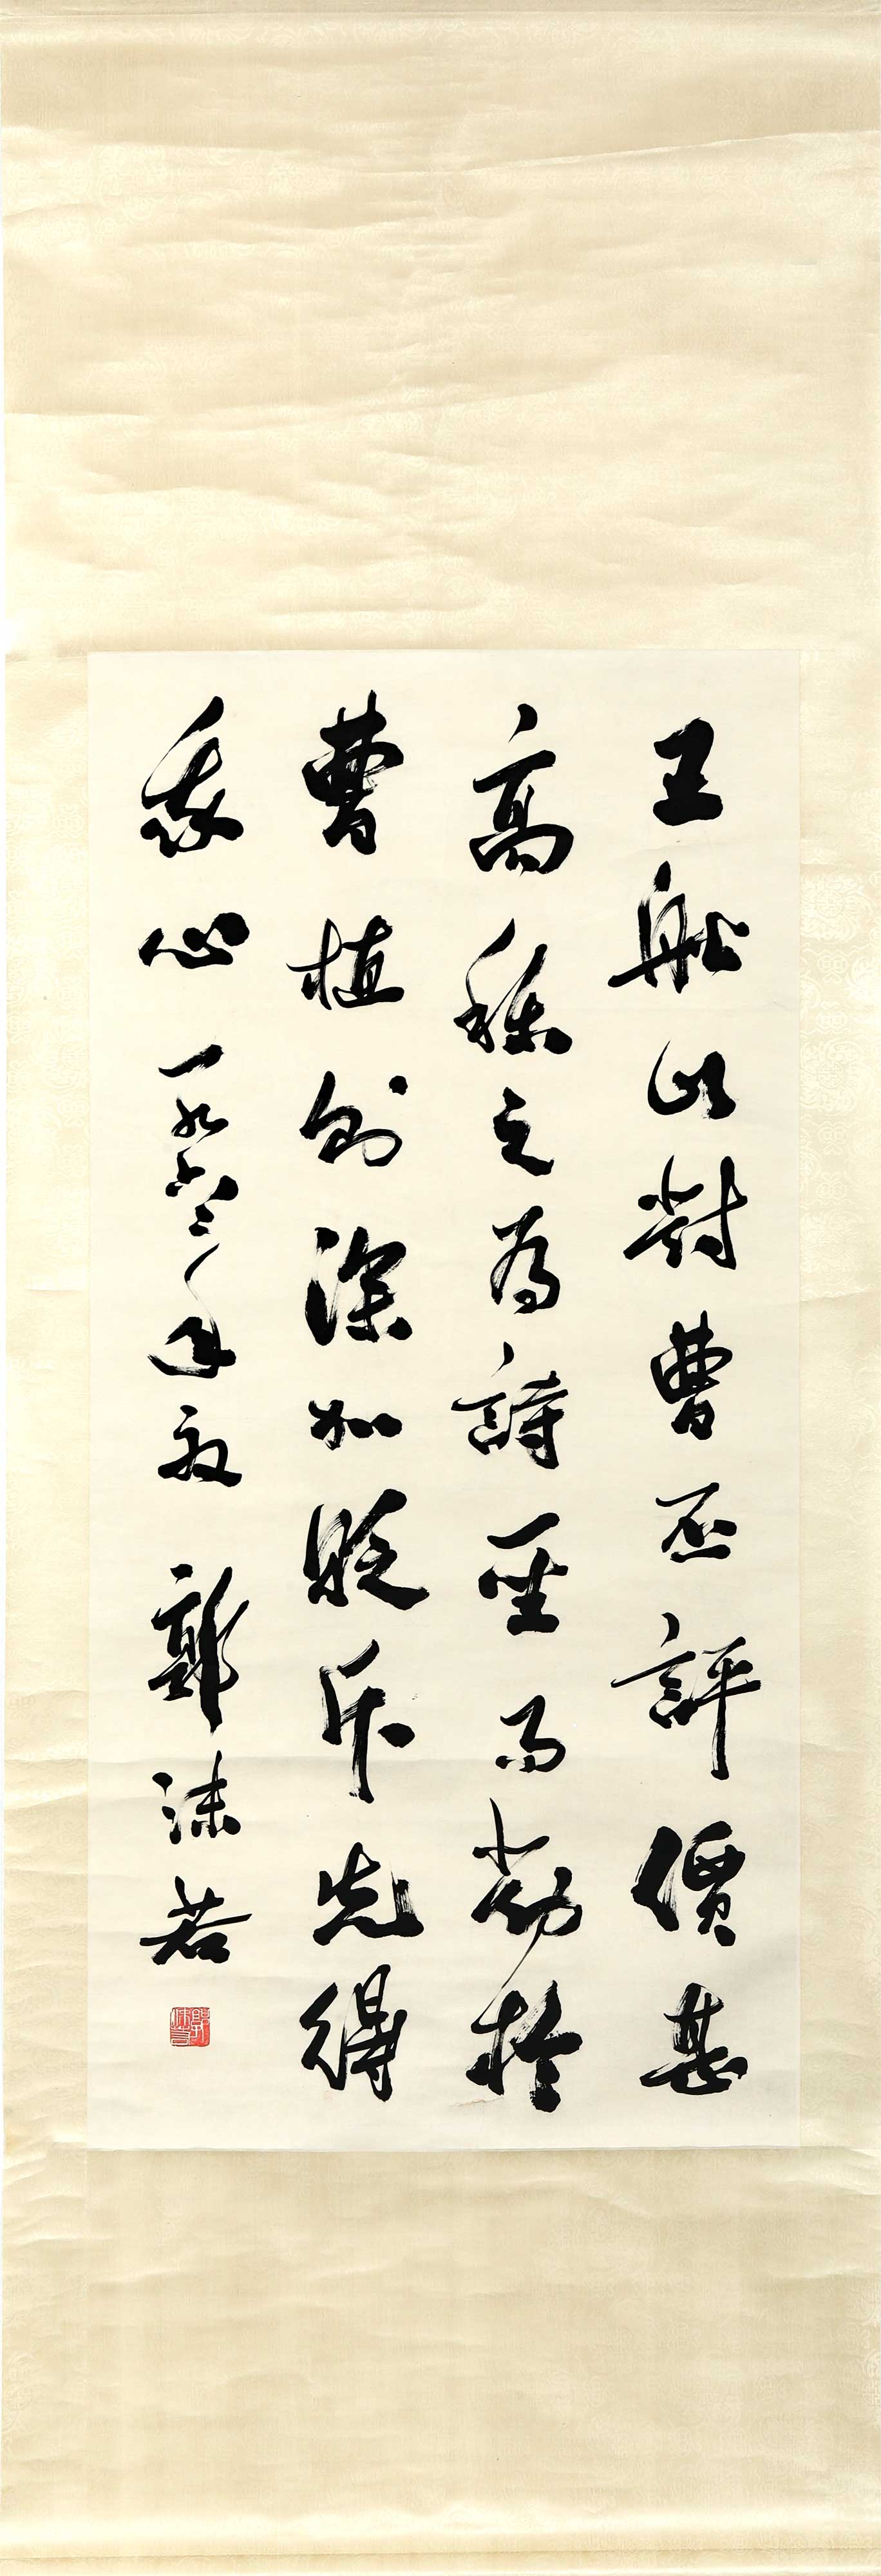 王船山對曹丕評價甚
高稱之為詩聖而於
曹植則深加貶斥先得
我心一九六二年秋郭沫若
郭沫若